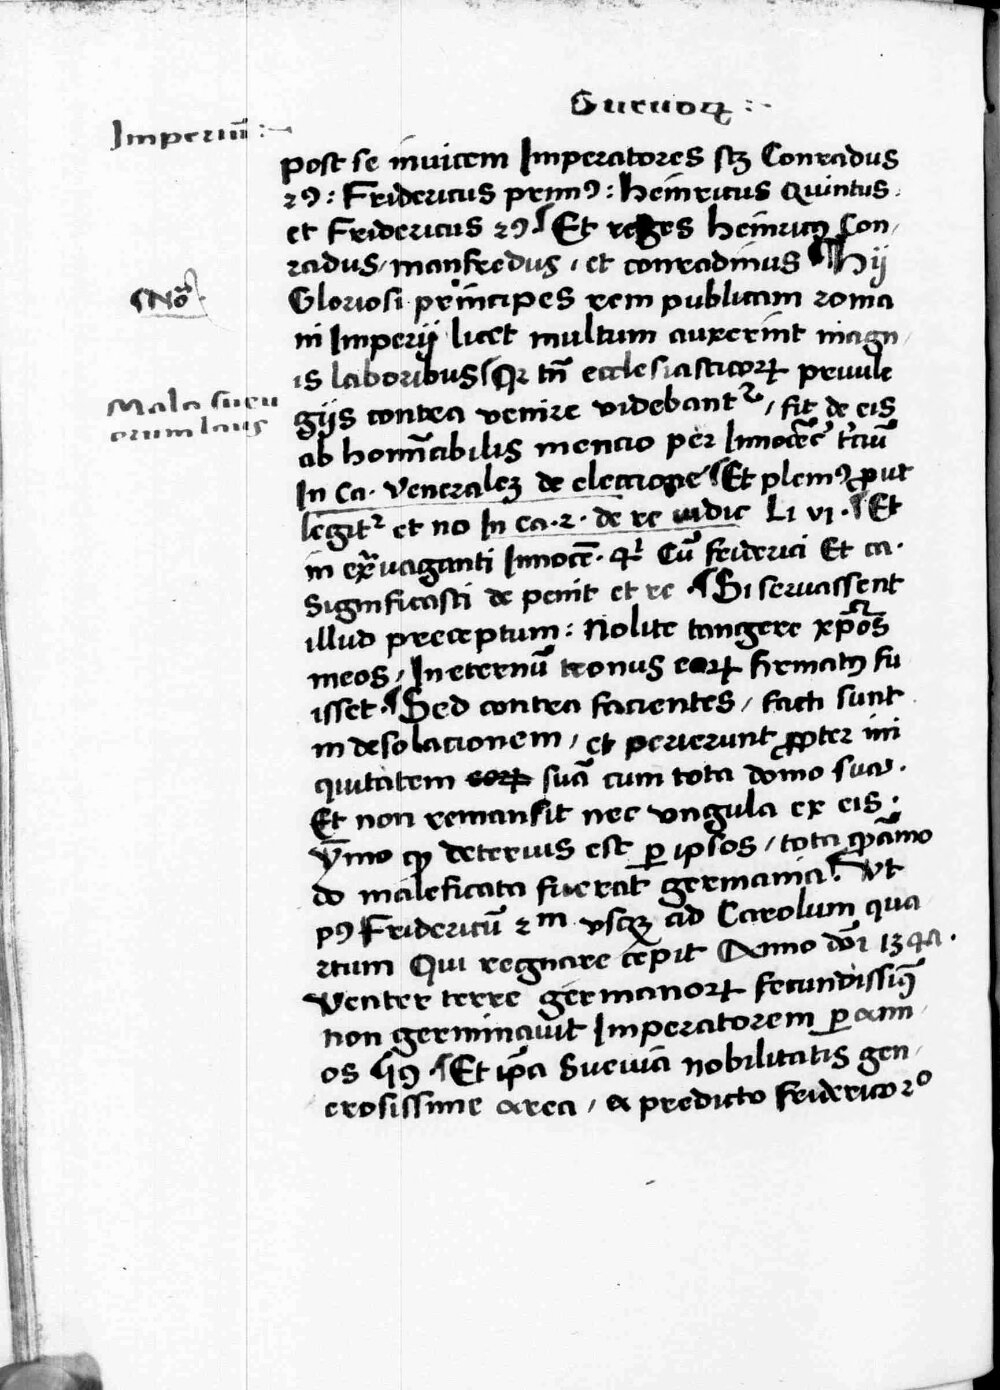 Sueuoꝝ :~
Imperiū :~
post se inuicem Imperatores scꝫ Conradus
2ꝰ : Fridericus primꝰ : heinricus Quintus .
et Fridericus 2ꝰ . ¶ Et reges heinricꝰ Con/
radus / manfredus . et conradinus ¶ Hij
¶ Nō .
Gloriosi principes rem publicam roma
ni Imperij licet multum auxerint magn/
is laboribus ¶ Qr tn̄ ecclesiasticoꝝ priuile
Mala sueu
orum laus
gijs contra venire videbantᷣ / fit de eis
ab homīabilis mencio per Innocēc̄ t'ciū
In ca . venerabileꝫ de electione ¶ Et plenīꝰ ꝓut
legitᷣ et no In ca . 2 . de re iudic Li vi . ¶ Et
in ex̄uaganti Innocē . 4ͭ Cū friderici Et ca .
Significasti de penit et re . ¶ Si seruassent
illud preceptum : Nolite tangere xp̄os
meos / In eternū tronus eoꝝ firmatꝰ fu
isset . ¶ Sed contra facientes / facti sunt
in desolacionem / et perierunt ꝓpter ini
quitatem eoꝝ suā cum tota domo sua .
Et non remansit nec vngula ex eis .
ȳmo qꝫ deterius est ꝑ ipsos / tota qͦdāmo
do maleficata fuerat germania . ¶ Vt
pꝰ Fridericū 2m vsqꝫ ad Carolum qua
rtum Qui regnare cepit Anno dn̄i 1347 .
Venter terre germanoꝝ fecundissimꝰ
non germinauit Imperatorem ꝑ ann/
os ¶ Et ip̄a Sueuia nobilitatis gen/
erosissime area / a predicto friderico 2o